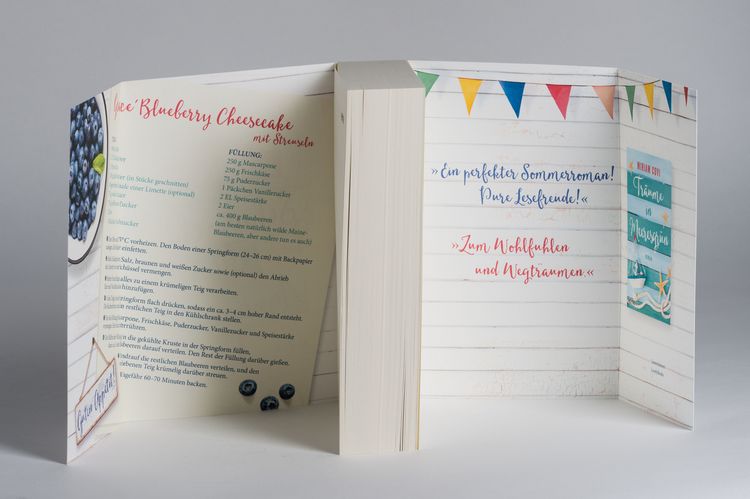 Blueberry Cheesecake
mit Streuseln
FÜLLUNG:
250 g Mascarpone
250 g Frischkäse
75 g Puderzucker
1 Päckchen Vanillezucker
2 EL Speisestärke
2 Eier
ca. 400 g Blaubeeren
(am besten natürlich wilde Maine-
Blaubeeren, aber andere tun es auch)
(in Stücke geschnitten)
einer Limette (optional)
°C vorheizen. Den Boden einer Springform (24–26 cm) mit Backpapier
Salz, braunen und weißen Zucker sowie (optional) den Abtrieb
vermengen.
alles zu einem krümeligen Teig verarbeiten.
hinzufügen.
flach drücken, sodass ein ca. 3–4 cm hoher Rand entsteht.
restlichen Teig in den Kühlschrank stellen.
Frischkäse, Puderzucker, Vanillezucker und Speisestärke
die gekühlte Kruste in der Springform füllen,
darauf verteilen. Den Rest der Füllung darüber gießen.
die restlichen Blaubeeren verteilen, und den
Teig krümelig darüber streuen.
60–70 Minuten backen.
Guten Appetit!
»Ein perfekter Sommerroman!
Pure Lesefreude!«
»Zum Wohlfühlen
und Wegträumen.«
MIRIAM COVI
Träume
in
Meeresgrün